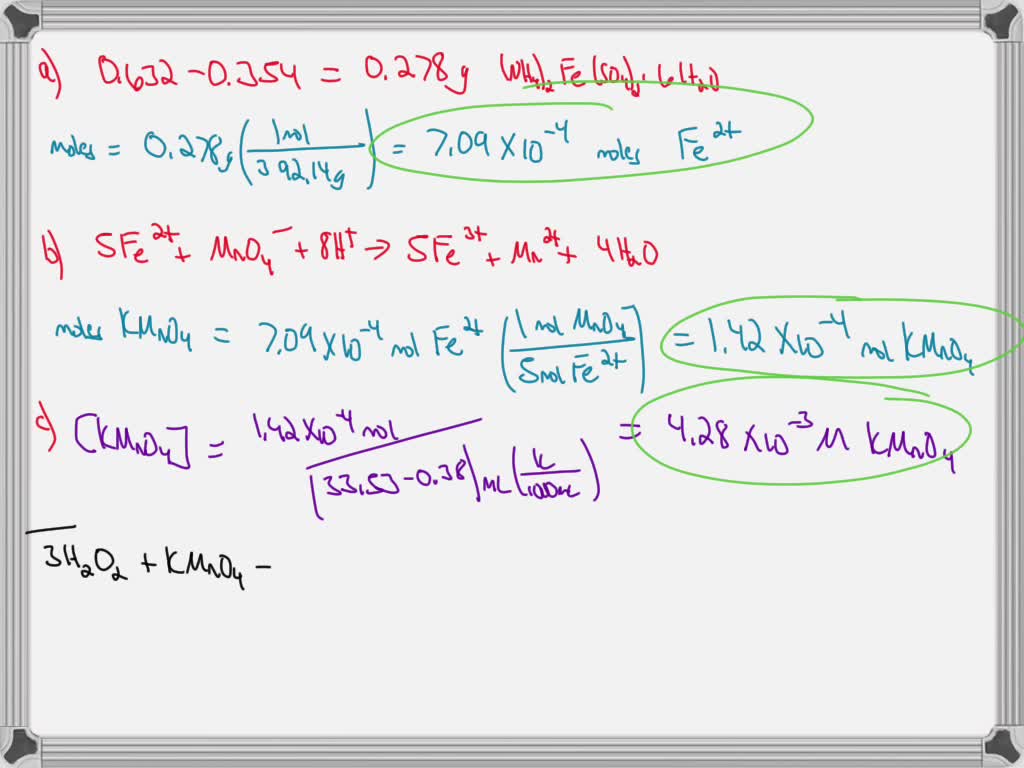 a) 0.632 - 0.354 = 0.278 g (NH₄)₂ Fe(SO₄)₂ · 6H₂O
moles = 0.278 g (1 mol / 392.14 g) = 7.09 × 10⁻⁴ moles Fe²⁺
b) 5Fe²⁺ + MnO₄⁻ + 8H⁺ → 5Fe³⁺ + Mn²⁺ + 4H₂O
moles KMnO₄ = 7.09 × 10⁻⁴ mol Fe²⁺ (1 mol MnO₄⁻ / 5 mol Fe²⁺) = 1.42 × 10⁻⁴ mol KMnO₄
c) [KMnO₄] = 1.42 × 10⁻⁴ mol / (33.53 - 0.38) mL (L / 1000 mL) = 4.28 × 10⁻³ M KMnO₄
3H₂O₂ + KMnO₄ -